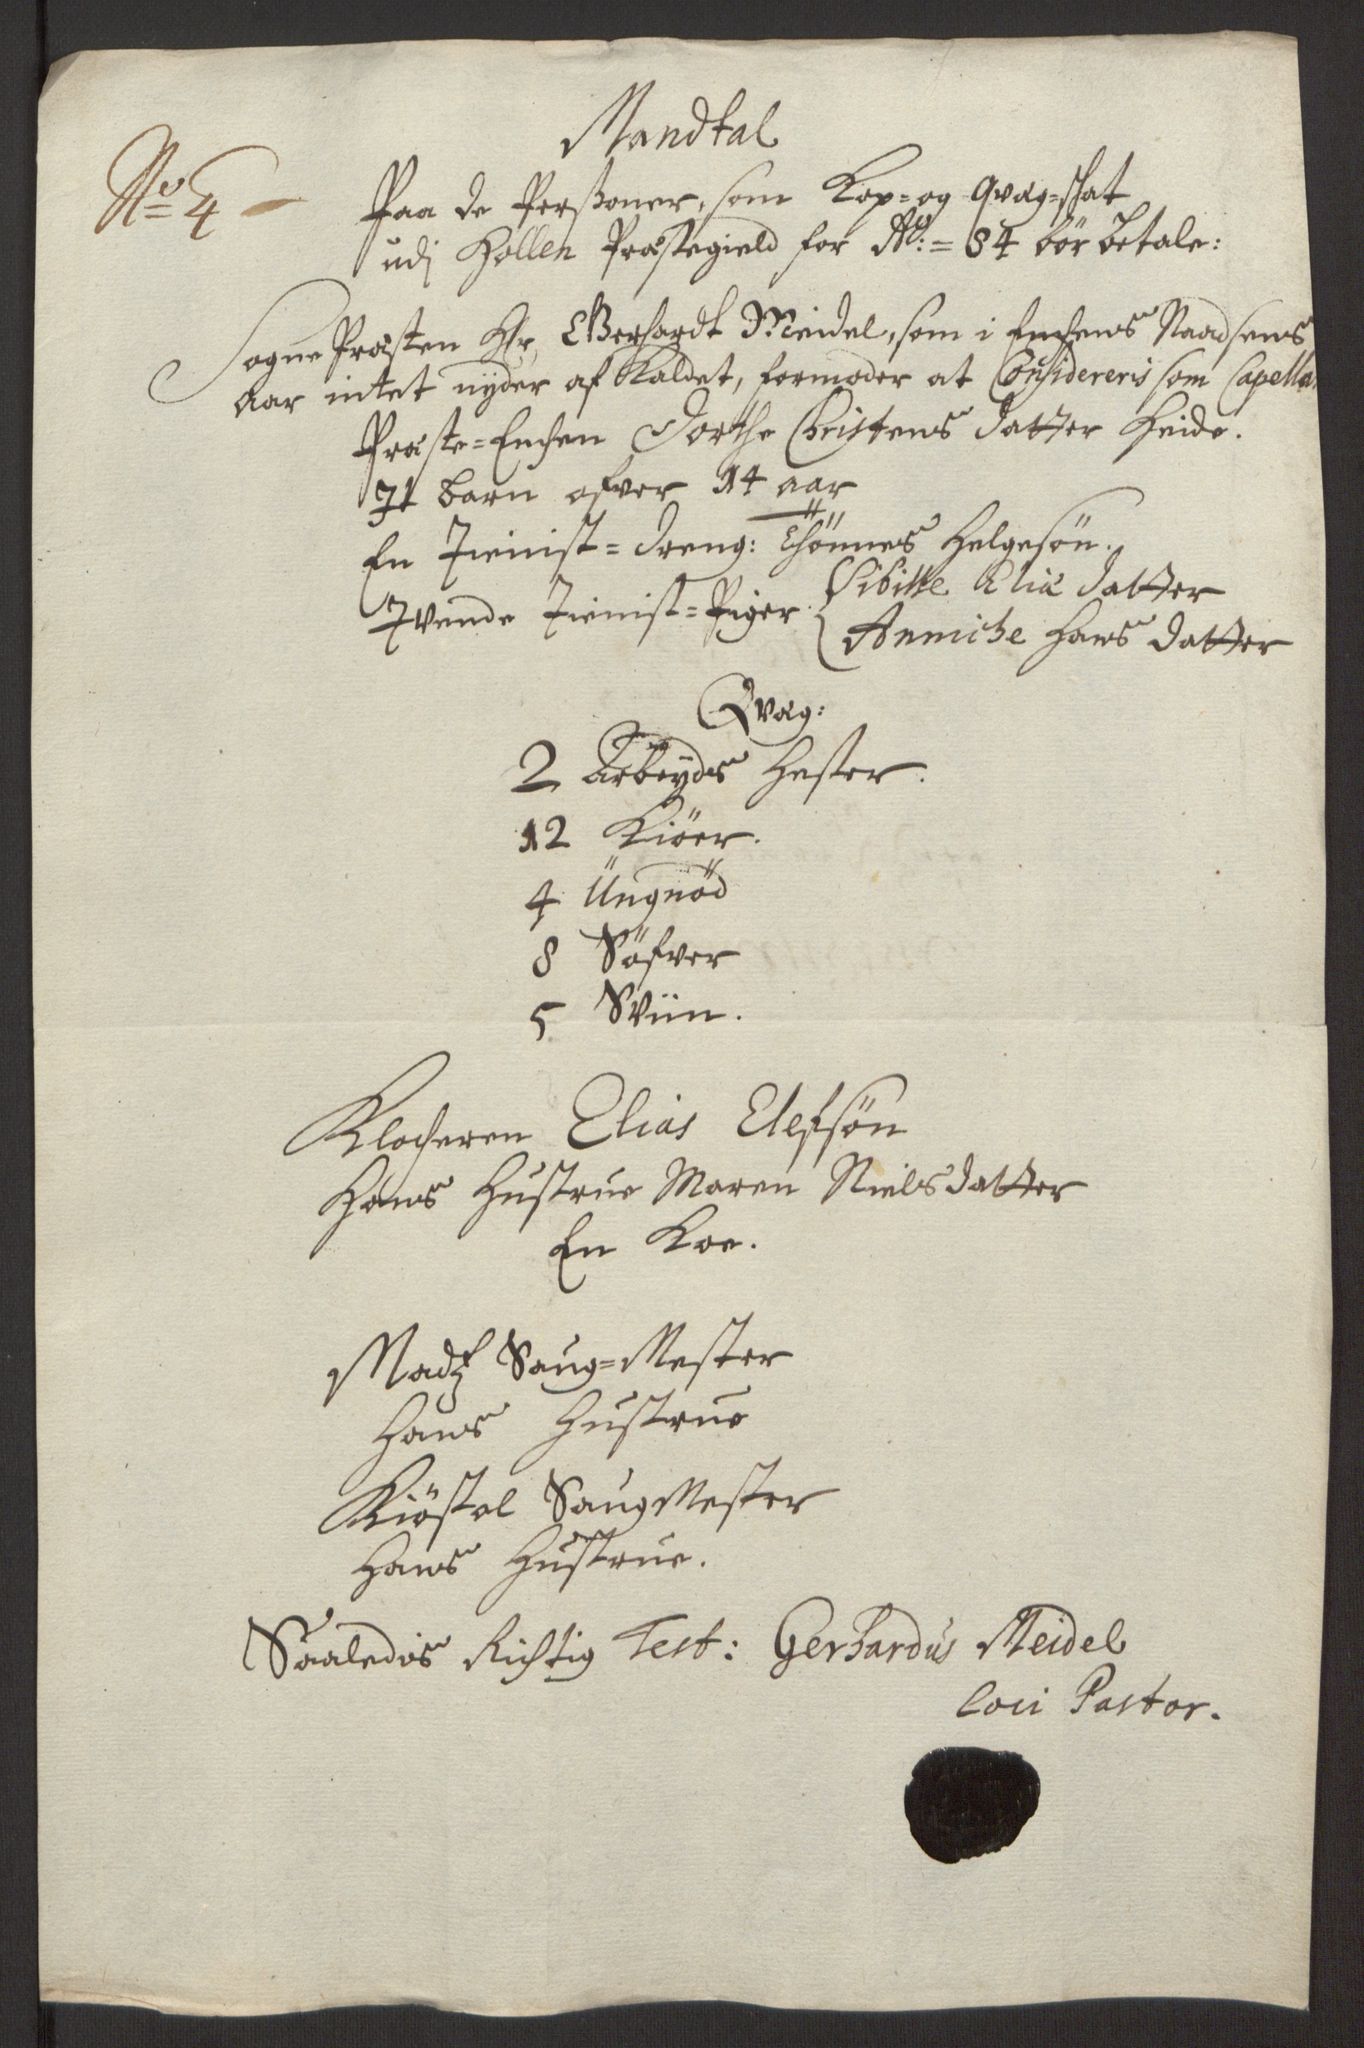 No 4
Mandtal
Paa de Personer, som Kop= og Qvæg=skat
udj Hollen Præstegield for Ao:= 84 bör betale:
Sogne Præsten Hr. Gerhardt Meidel, som i Enchens Naadsens
Aar intet nyder af Kaldet, formoder at Considereris som Capella
Præste=Enchen Dorthe Christens datter Heide.
It barn ofver 14 aar
En Tienist=dreng: Thönnes Helgesön.
Tvende Tienist=Piger Sibille Eliæ datter
Anniche Hans datter
Qvæg:
2 Arbeyds Hester.
12 Kiöer.
4 Üngnöd
8 Söfver
5 Sviin.
Klocheren Elias Elefsön
Hans Hustrue Maren Nielsdatter
En Koe.
Madz Saug=Mester
Hans Hustrue
Kiöstol SaugMester
Hans Hustrue.
Saaledis Richtig Test: Gerhardus Meidel
loci Pastor.